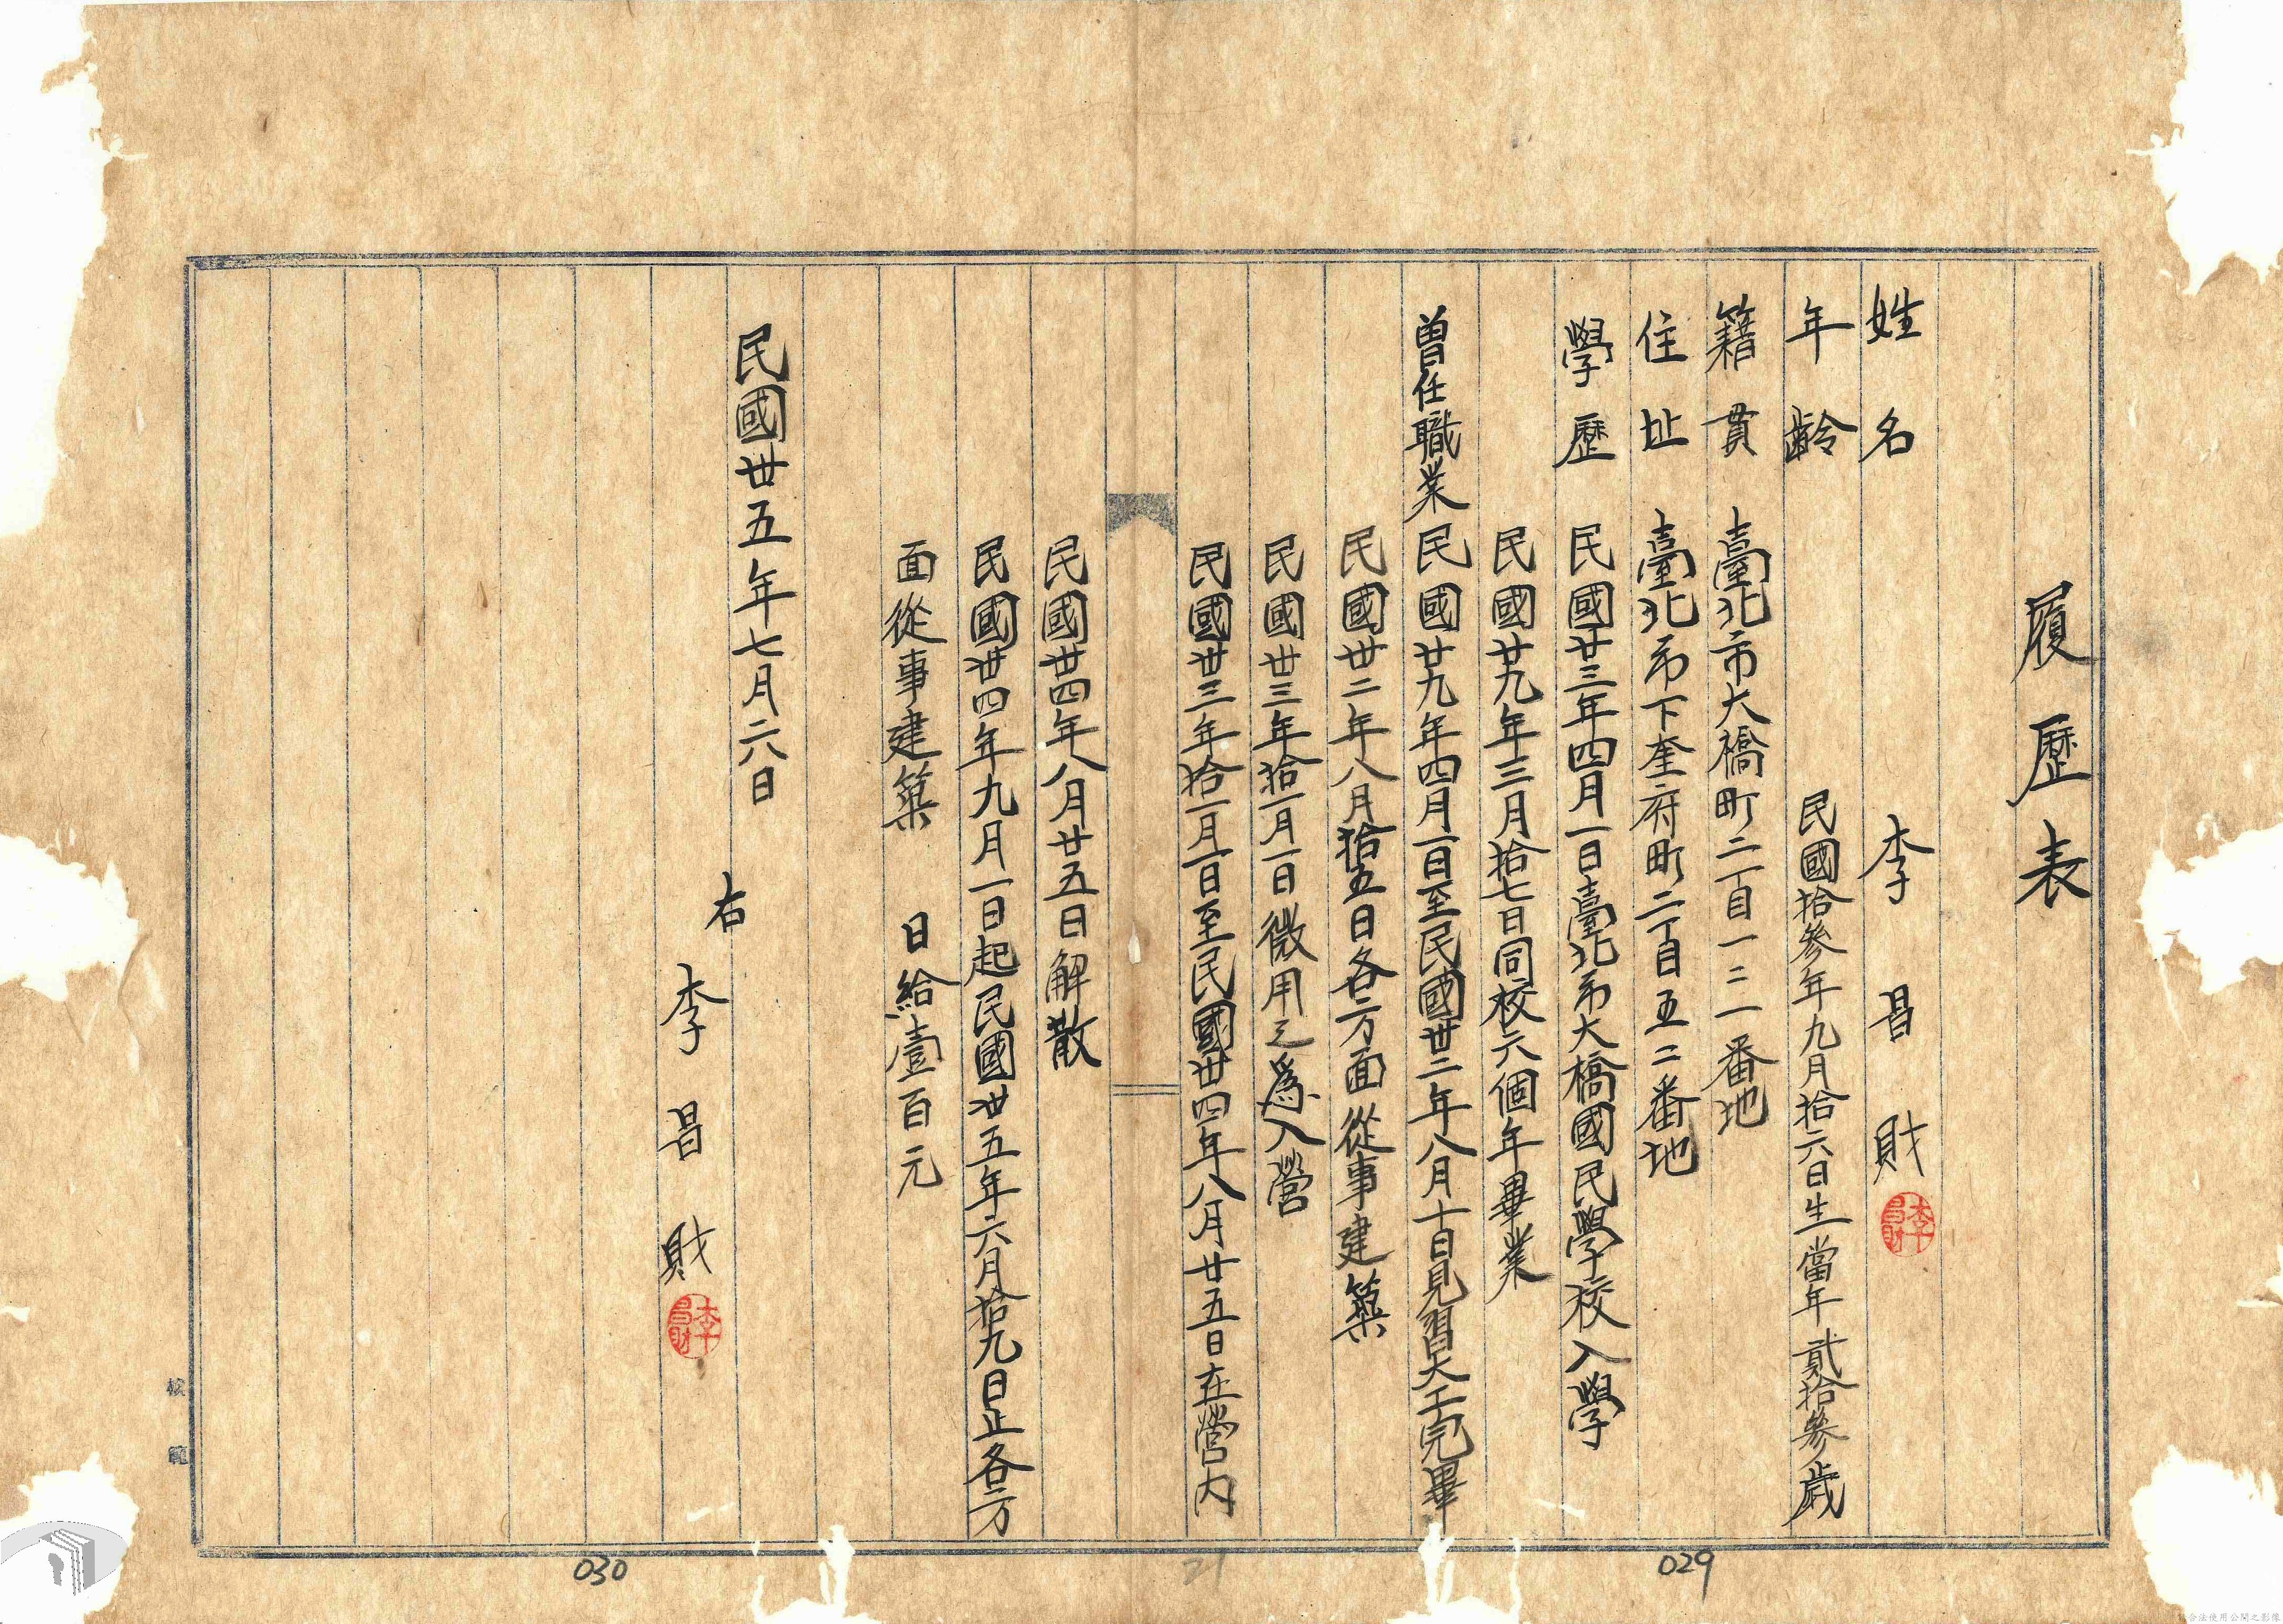 履歷表
姓名 李昌財
李昌財
年齡 民國拾參年九月拾六日生當年貳拾參歲
籍貫 臺北市大橋町二丁目一二一番地
住址 臺北市下奎府町二丁目五二番地
學歷 民國廿三年四月一日臺北市大橋國民學校入學
民國廿九年三月拾七日同校六個年畢業
曾任職業 民國廿九年四月一日至民國卅二年八月十日見習大工完畢
民國卅二年八月拾五日各方面從事建築
民國卅三年拾一月一日徵用之為入營
民國卅三年拾一月一日至民國卅四年八月廿五日在營內
民國卅四年八月廿五日解散
民國卅四年九月一日起民國卅五年六月拾九日止各方
面從事建築 日給壹百元
民國卅五年七月二六日
右
李昌財
李昌財
029
21
030